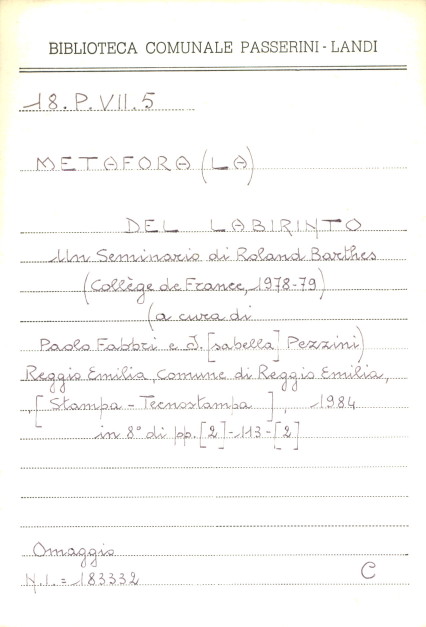 BIBLIOTECA COMUNALE PASSERINI-LANDI
18.P.VII.5
METAFORA (LA)
DEL LABIRINTO
Un Seminario di Roland Barthes
(Collège de France, 1978-79)
(a cura di
Paolo Fabbri e I.[sabella] Pezzini)
Reggio Emilia, Comune di Reggio Emilia,
[Stampa - Tecnostampa], 1984
in 8° di pp. [2]-113-[2]
Omaggio
N.I. = 183332 C